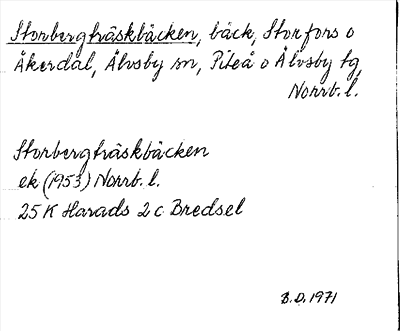 Storbergträskbäcken, bäck, Storfors o
Åkerdal, Älvsby sn, Piteå o Älvsby tg,
Norrb. l.
Storbergträskbäcken
ek (1953) Norrb. l.
25 K Harads 2 c Bredsel
B.D. 1971